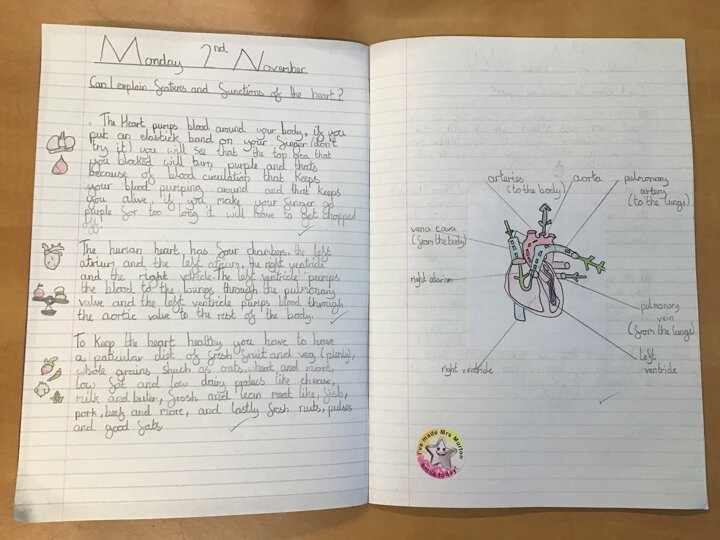 Monday 2nd November
Can I explain featues and functions of the heart?
. The Heart pumps blood around your body, if you
put an elastick band on your finger (don't
try it) you will see that the top area that
you blocked will turn purple and thats
because of blood circulation that keeps
your blood pumping around and that keeps
you alive, if you make your finger go
purple for too long it will have to get chopped
off!
The human heart has four chambers, the left
atrium and the left atrium, the right ventricle
and the right vetricle. The left ventricle pumps
the blood to the loungs through the pulmonary
valve and the left ventricle pumps blood through
the aortic valve to the rest of the body.
To keep the heart healthy you have to have
a paticular diet of fresh fruit and veg (plenty),
whole grains shuch as oats, wheat and more,
low fat and low dairy products like chease,
milk and buter, fresh and lean meat like, fish,
pork, beef and more, and lastly fresh nuts, pulses
and good fats.
arteries
(to the body)
aorta
pulmonary
artery
(to the lungs)
vena cava
(from the body)
right atarium
pulmonary
vein
(from the lungs)
left
ventricle
right ventricle
I've made Mrs Murton
smile today!